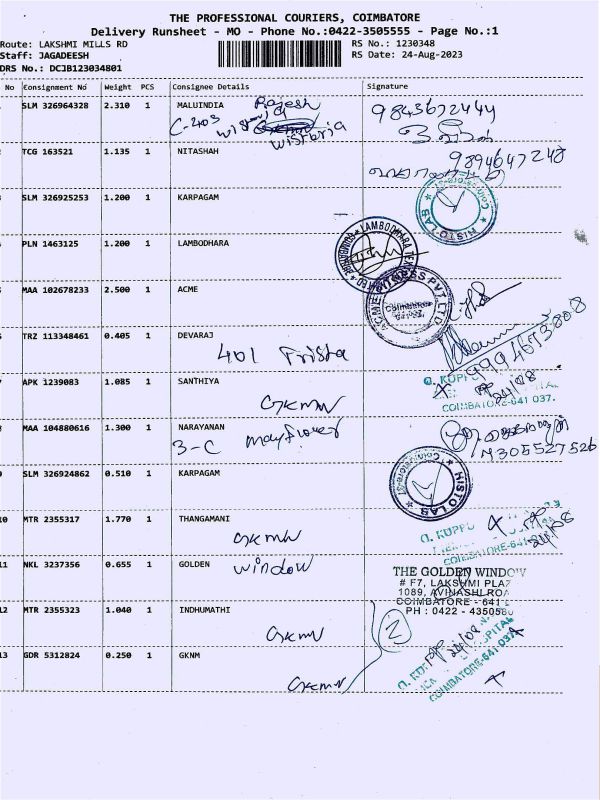 THE PROFESSIONAL COURIERS, COIMBATORE
Delivery Runsheet - MO - Phone No.:0422-3505555 - Page No.:1
Route: LAKSHMI MILLS RD
RS No.: 1230348
Staff: JAGADEESH
RS Date: 24-Aug-2023
DRS No.: DCJB123034801
No Consignment No Weight PCS Consignee Details Signature
SLM 326964328 2.310 1 MALUINDIA Rajesh 9843672444
C-203
wistoria
TCG 163521 1.135 1 NITASHAH 9894647248
SLM 326925253 1.200 1 KARPAGAM
HISTO LAB
PLN 1463125 1.200 1 LAMBODHARA
LAMBODHARA
MAA 102678233 2.500 1 ACME
FITNESS PVT LTD
Coimbatore
TRZ 113348461 0.405 1 DEVARAJ
401 Trista
9994673808
APK 1239083 1.085 1 SANTHIYA
GKMN
24/08
COIMBATORE-641 037.
MAA 104880616 1.300 1 NARAYANAN
3-C mayflower
SLM 326924862 0.510 1 KARPAGAM
HISTO LAB
10 MTR 2355317 1.770 1 THANGAMANI
GKMN
24/08
11 NKL 3237356 0.655 1 GOLDEN
window
THE GOLDEN WINDOW
# F7, LAKSHMI PLAZ
1089, AVINASHI ROA
COIMBATORE - 641
PH : 0422 - 4350580
12 MTR 2355323 1.040 1 INDHUMATHI
GKMN
2
24/08
13 GDR 5312824 0.250 1 GKNM
GKMN
COIMBATORE-641 037